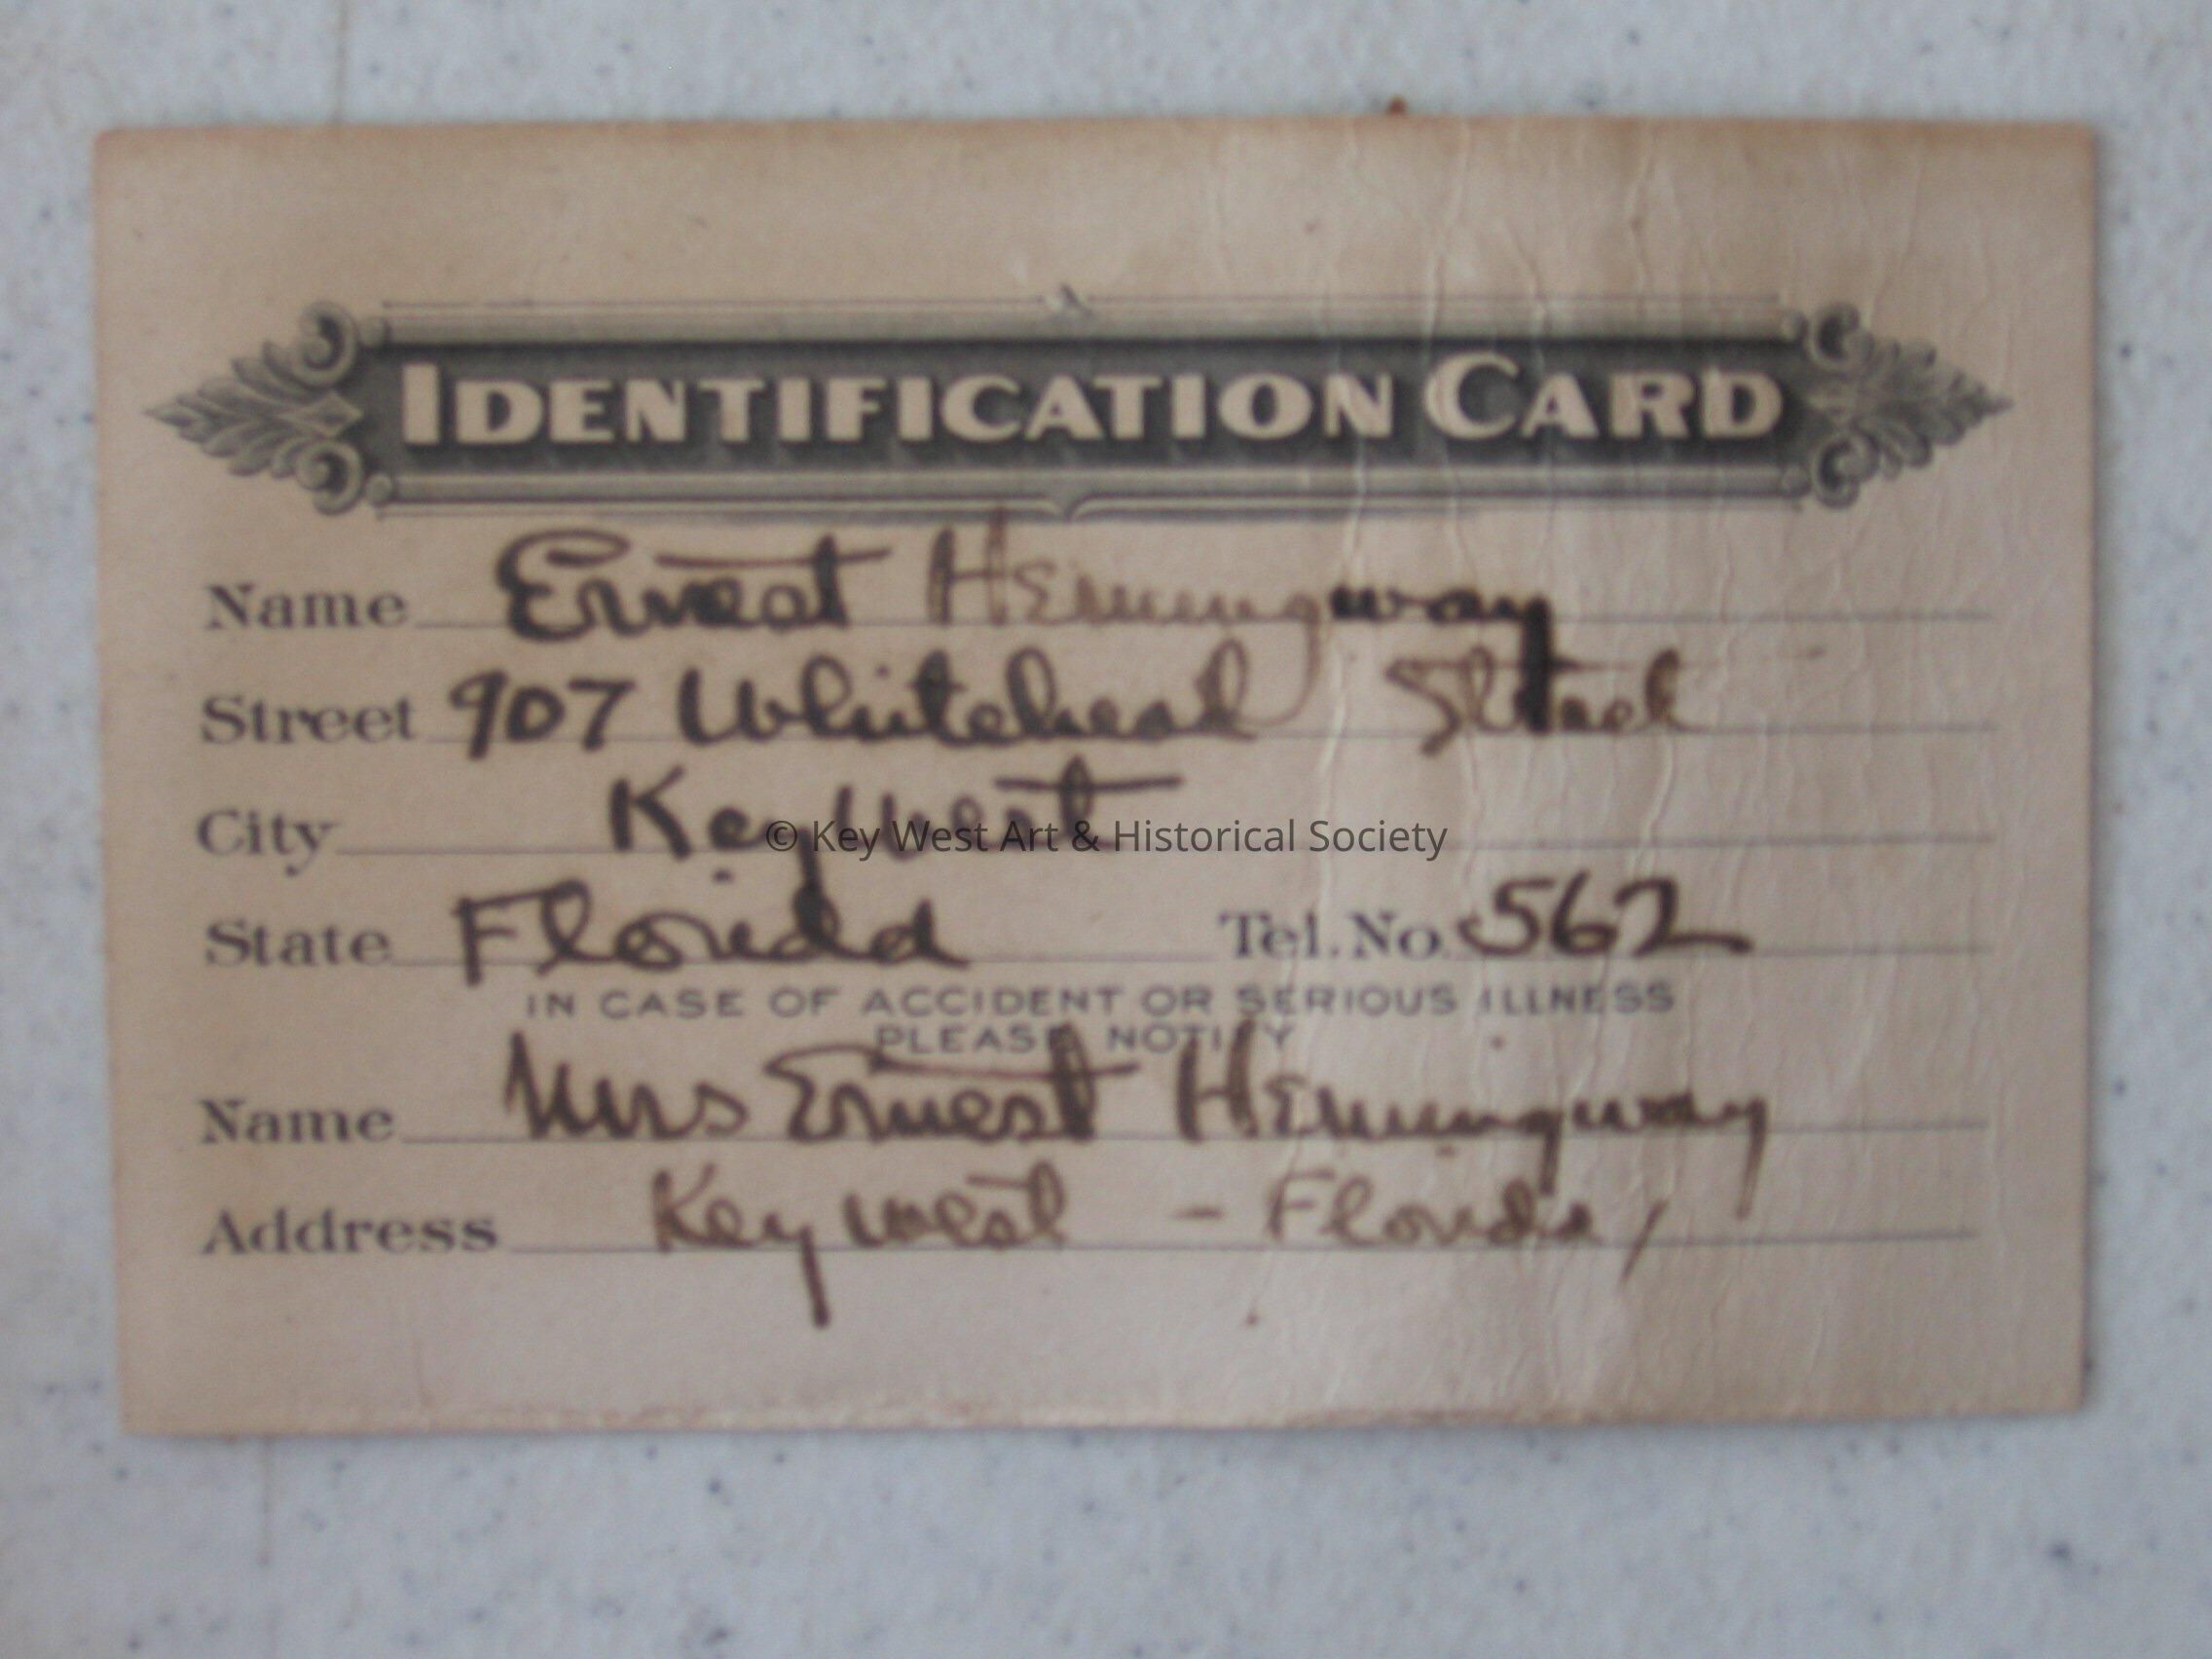 IDENTIFICATION CARD
Name Ernest Hemingway
Street 907 Whitehead Street
City Key West
© Key West Art & Historical Society
State Florida Tel. No. 562
IN CASE OF ACCIDENT OR SERIOUS ILLNESS
PLEASE NOTIFY
Name Mrs Ernest Hemingway
Address Key West - Florida,